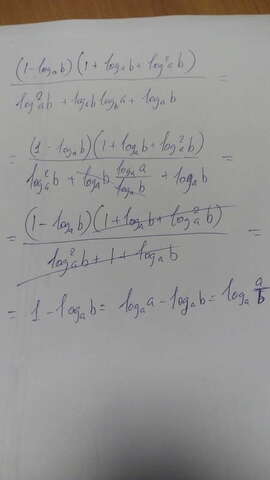 (1-logₐb)(1+logₐb+logₐ²b) / (logₐ²b+logₐb log_b a+logₐb) =
= (1-logₐb)(1+logₐb+logₐ²b) / (logₐ²b+logₐb logₐa/logₐb+logₐb) =
= (1-logₐb)(1+logₐb+logₐ²b) / (logₐ²b+1+logₐb) =
= 1-logₐb = logₐa-logₐb = logₐ a/b